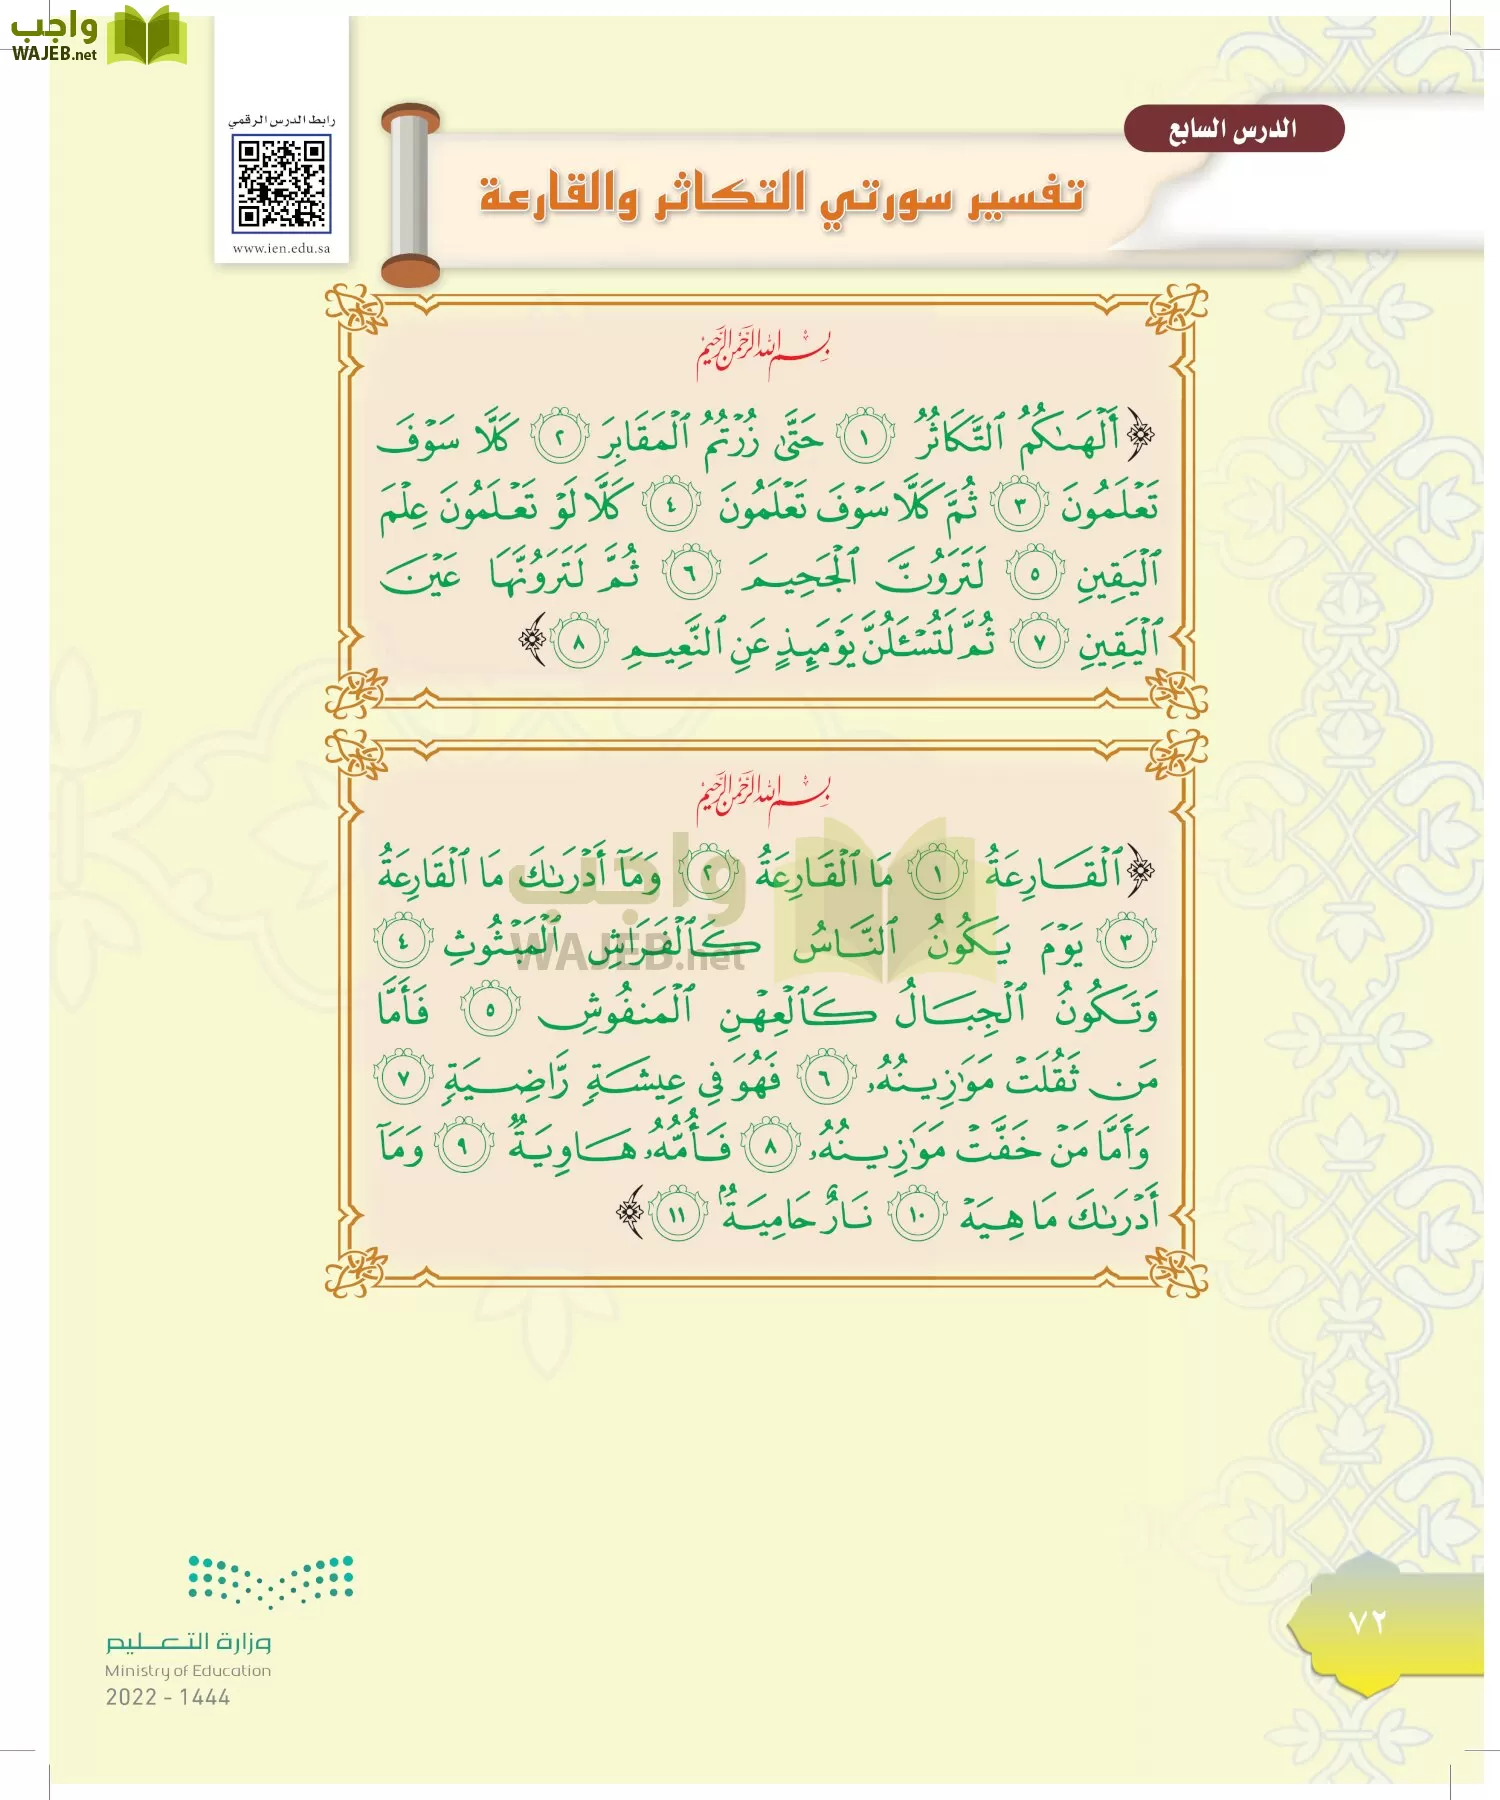 واجب
WAJEB.net
رابط الدرس الرقمي
www.ien.edu.sa
الدرس السابع
تفسير سورتي التكاثر والقارعة
بِسْمِ اللَّهِ الرَّحْمَٰنِ الرَّحِيمِ
﴿أَلْهَىٰكُمُ ٱلتَّكَاثُرُ ١ حَتَّىٰ زُرْتُمُ ٱلْمَقَابِرَ ٢ كَلَّا سَوْفَ
تَعْلَمُونَ ٣ ثُمَّ كَلَّا سَوْفَ تَعْلَمُونَ ٤ كَلَّا لَوْ تَعْلَمُونَ عِلْمَ
ٱلْيَقِينِ ٥ لَتَرَوُنَّ ٱلْجَحِيمَ ٦ ثُمَّ لَتَرَوُنَّهَا عَيْنَ
ٱلْيَقِينِ ٧ ثُمَّ لَتُسْـَٔلُنَّ يَوْمَئِذٍ عَنِ ٱلنَّعِيمِ ٨﴾
بِسْمِ اللَّهِ الرَّحْمَٰنِ الرَّحِيمِ
﴿ٱلْقَارِعَةُ ١ مَا ٱلْقَارِعَةُ ٢ وَمَآ أَدْرَىٰكَ مَا ٱلْقَارِعَةُ
٣ يَوْمَ يَكُونُ ٱلنَّاسُ كَٱلْفَرَاشِ ٱلْمَبْثُوثِ ٤
وَتَكُونُ ٱلْجِبَالُ كَٱلْعِهْنِ ٱلْمَنفُوشِ ٥ فَأَمَّا
مَن ثَقُلَتْ مَوَٰزِينُهُۥ ٦ فَهُوَ فِى عِيشَةٍ رَّاضِيَةٍ ٧
وَأَمَّا مَنْ خَفَّتْ مَوَٰزِينُهُۥ ٨ فَأُمُّهُۥ هَاوِيَةٌ ٩ وَمَآ
أَدْرَىٰكَ مَا هِيَهْ ١٠ نَارٌ حَامِيَةٌۢ ١١﴾
واجب
WAJEB.net
وزارة التعليم
Ministry of Education
2022 - 1444
٧٢